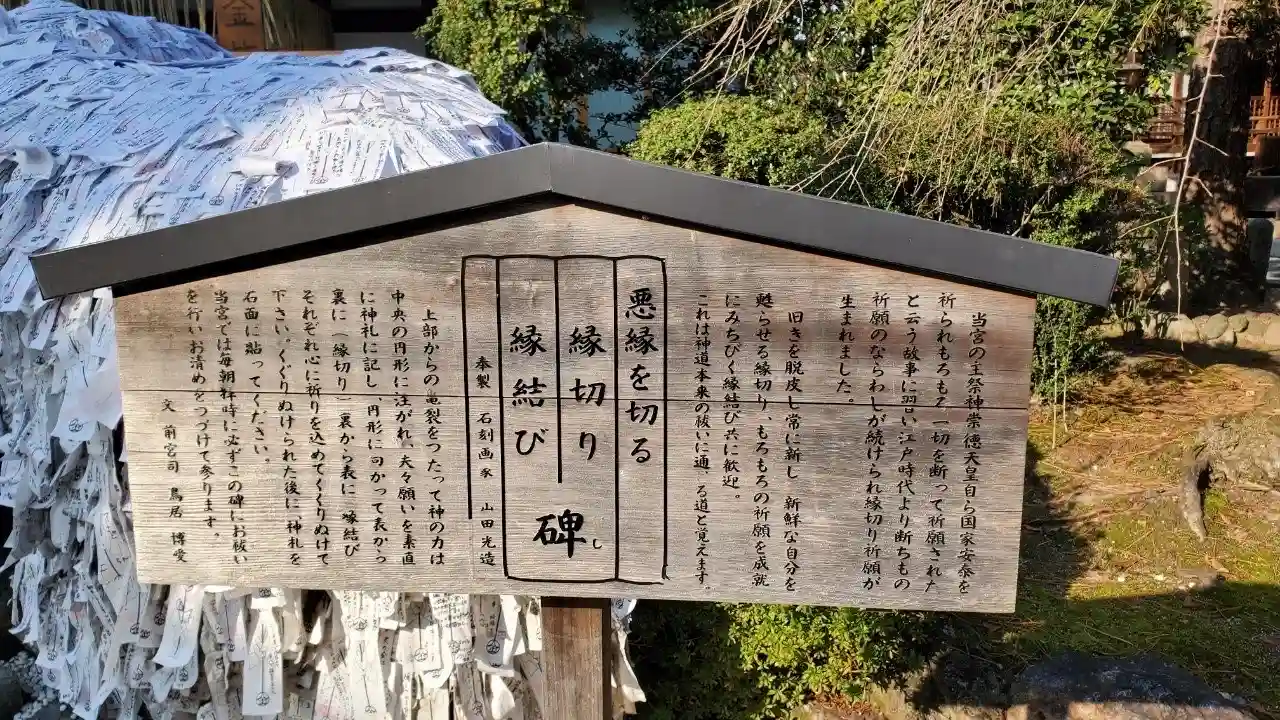 当宮の主祭神崇徳天皇自ら国家安泰を
祈られもろもろ一切を断って祈願された
と云う故事に習い江戸時代より断ちもの
祈願のならわしが続けられ縁切り祈願が
生まれました。
旧きを脱皮し常に新し 新鮮な自分を
甦らせる縁切り、もろもろの祈願を成就
にみちびく縁結び共に歓迎。
これは神道本来の祓いに通 る道と覚えます。
悪縁を切る
縁切り
縁結び
碑
し
奉製 石刻画家 山田光造
上部からの亀裂をつたって神の力は
中央の円形に注がれ、夫々願いを素直
に神札に記し、円形に向かって表からっ
裏に（縁切り）裏から表に（縁結び
それぞれ心に祈りを込めてくぐりぬけて
下さい。くぐりぬけられた後に、神札を
石面に貼ってください。
当宮では毎朝拝時に必ずこの碑にお祓い
を行いお清めをつづけて参ります。
文 前宮司 鳥居 博愛